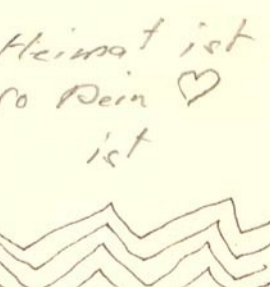 Heimat ist
wo Dein ♡
ist